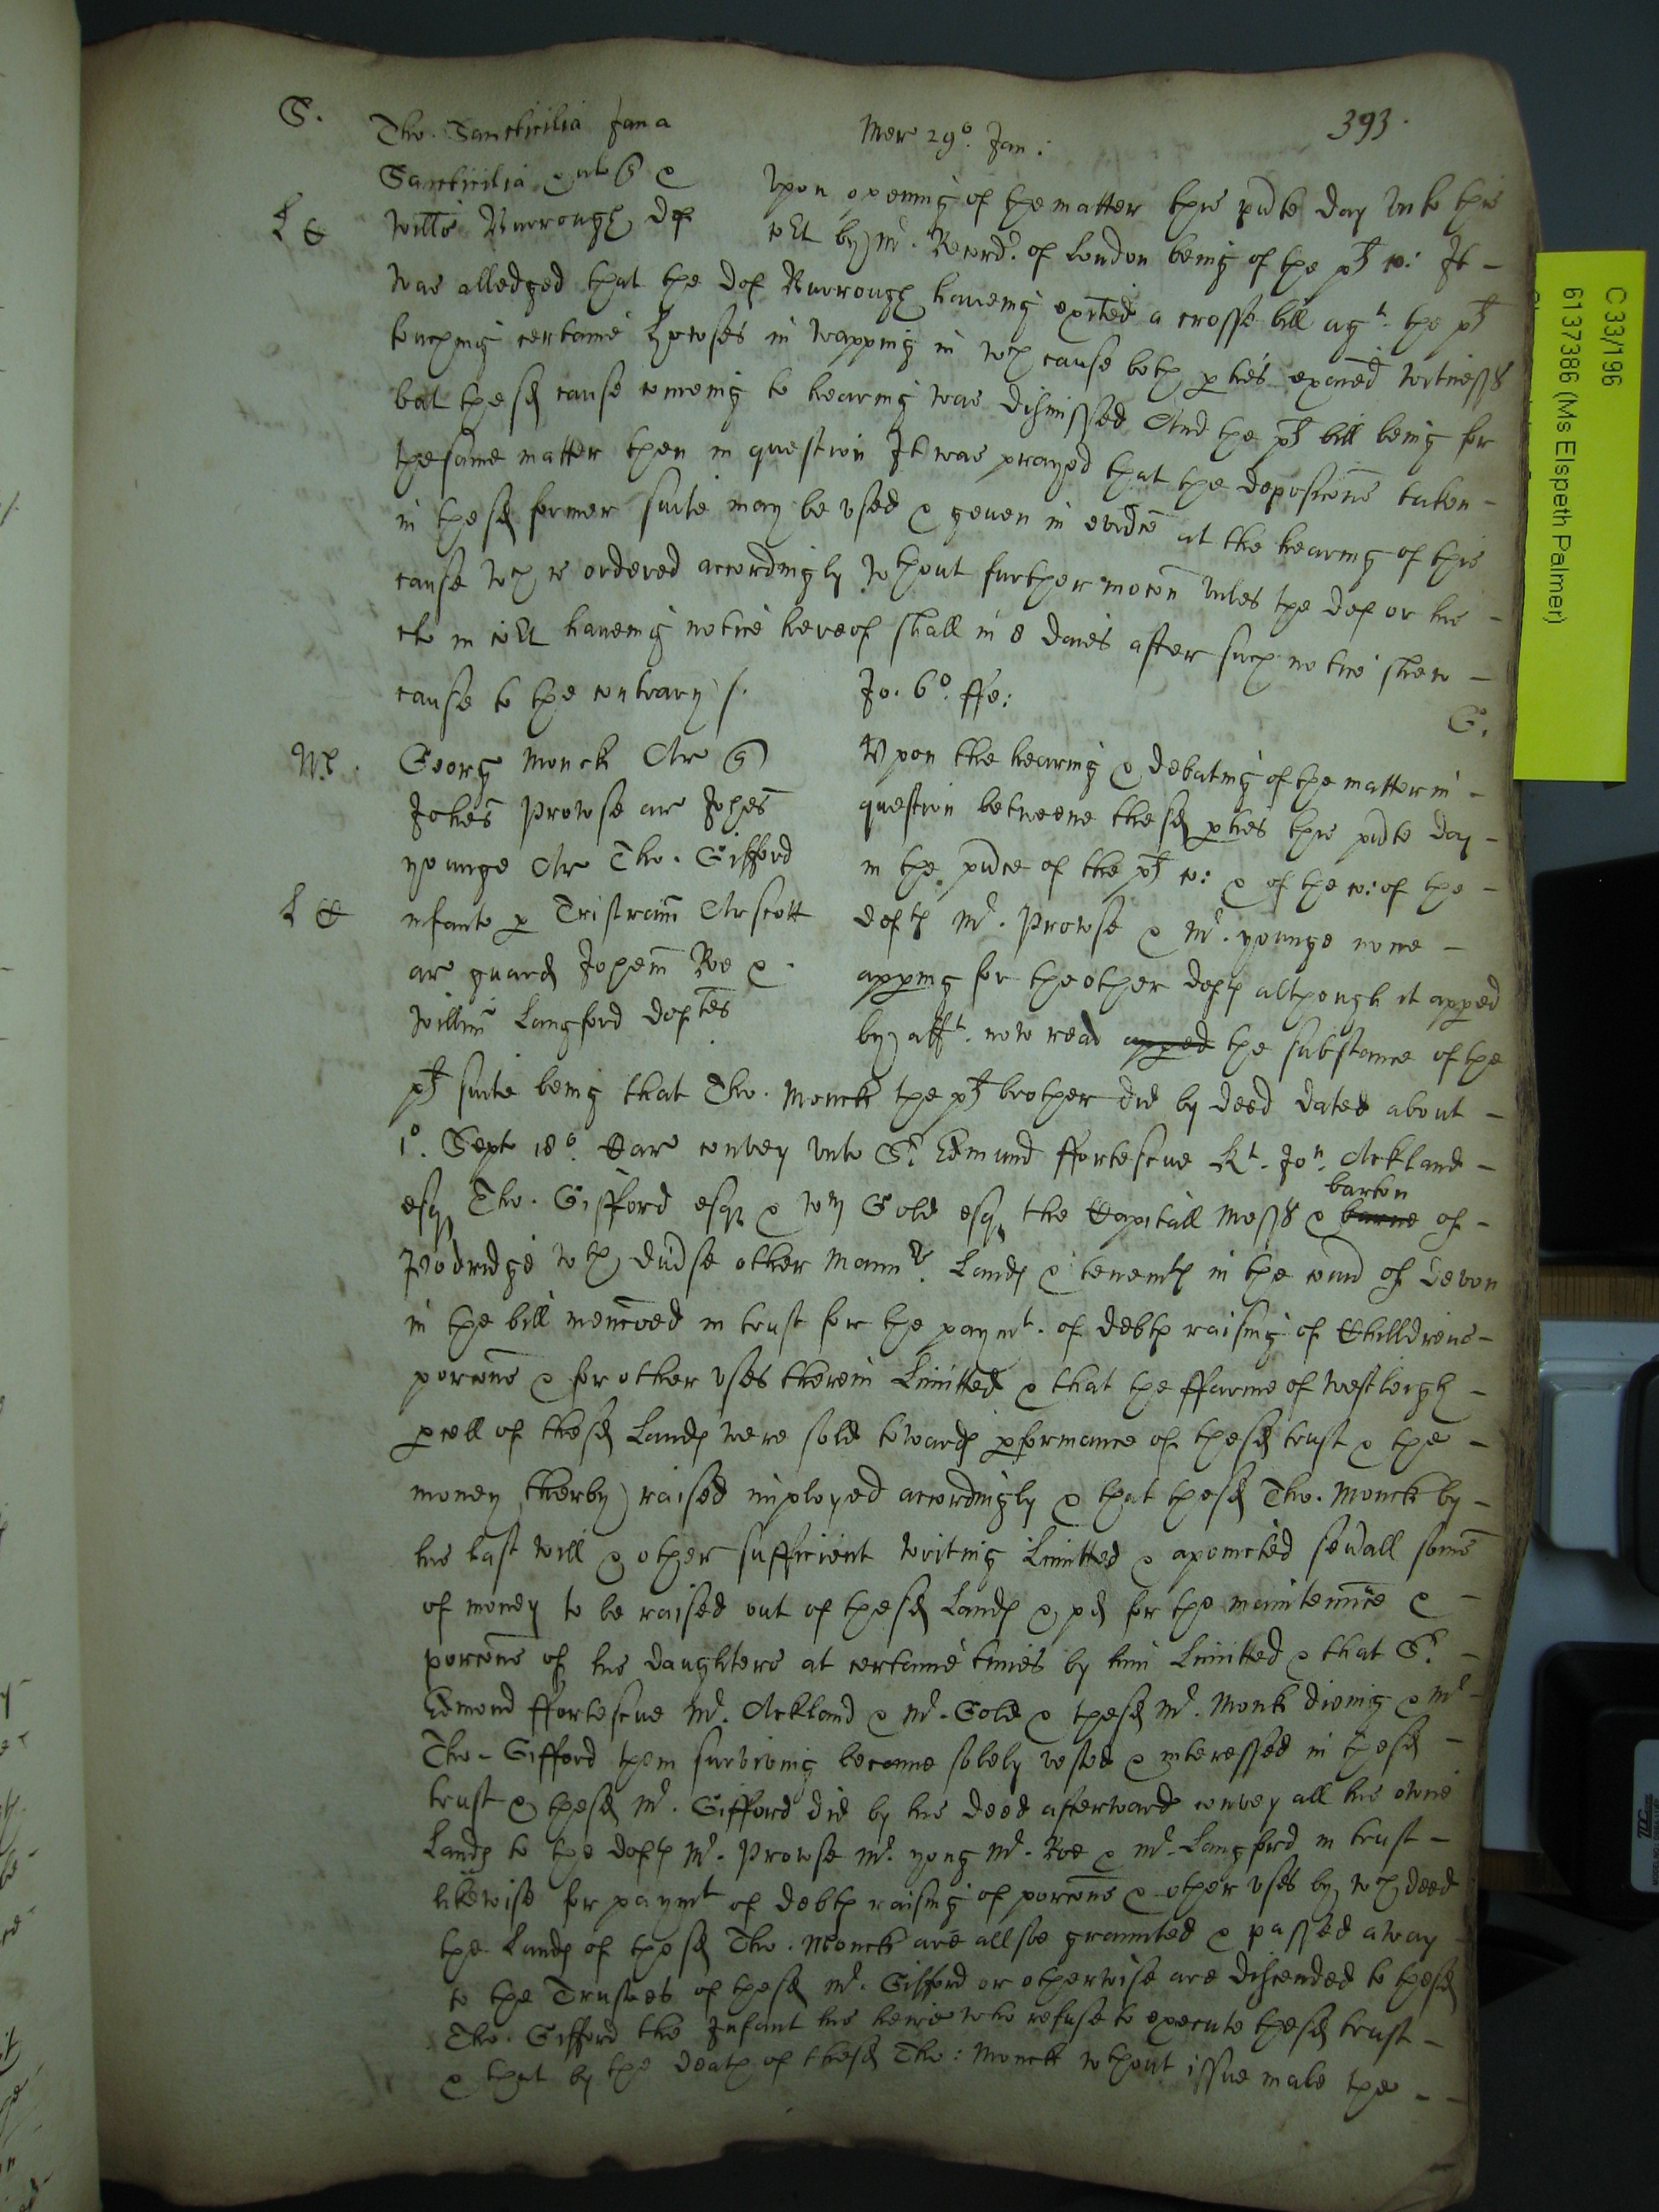 393.
S.
Tho. Sancticilia Jana
Mer 29o. Jan:
Sancticilia quer &
Upon opening of the matter this pnte day unto this
L C
Willms Burrough def
cort by Mr. Record.r of London being of the pl co: It -
was alledged that the def Burrough haveing exited a crosse bill agt. the pl
touching certaine howses in Wapping in wch cause both pties exaied witnesses
but the sd cause comeing to hearing was dismissed And the pl bill being for
the same matter then in question It was prayed that the deposicons taken -
in the sd former suite may be used & geven in evidce at the hearing of this
cause wch is ordered accordingly wthout further mocon unles the def or his -
clo in cort haveing notice hereof shall in 8 daies after such notice shew -
cause to the contrary /.
Jo. 6o. ffe:
G.
Georg Monck Ar
Upon the hearing & debating of the matter in -
Johes Prowse ar Johes
question betweene the sd pties this pnte day -
younge Ar Tho. Gifford
in the pnce of the pl co: & of the co: of the -
L C
infante p Tristram Arscott
deftes Mr. Prowse & Mr. younge none -
ar guard Johem Roe &
apping for the other deftes although it apped
Willm Langford deftes
by afft. now read apped the substance of the
pl suite being that Tho. Monck the pl brother did by deed dated about -
1o. Sept 18o. Car convey unto Sr. Edmund ffortescue Kt. Jon. Ackland -
barton
esqr Tho. Gifford esqr & Wm Gold esqr the Capitall Mess & barne of -
Podridge wth divse other Mannrs. Landes & tenemtes in the count of Devon
in the bill mencoed in trust for the paymt. of debtes raising of Chilldrens -
porcons & for other uses therein Limitted & that the ffarme of Westleigh -
pcell of the sd Landes were sold towardes pformance of the sd trust & the -
money therby raised imployed accordingly & that the sd Tho. Monck by -
his last will & other sufficient writing Limitted & apointed sevall somes
of money to be raised out of the sd Landes & pd for the maintennce & -
porcons of his daughters at certaine times by him Limitted & that Sr. -
Edmond ffortescue Mr. Ackland & Mr. Gold & the sd Mr. Monk dieing & Mr -
Tho. Gifford them surviving became solely vested & interessed in the sd -
trust & the sd Mr. Gifford did by his deed afterward convey all his owne
Landes to the deftes Mr. Prowse Mr. yong Mr. Roe & Mr. Langford in trust -
likewise for paymt of debtes raising of porcons & other uses by wch deed
the Landes of the sd Tho. Monck are allsoe graunted & passed away
to the Trustees of the sd Mr. Gifford or otherwise are discended to the sd
Tho. Gifford the Infant his heire who refuse to execute the sd trust -
& that by the death of the sd Tho: Monck wthout issue male the - -
C 33/196
6137386 (Ms Elspeth Palmer)